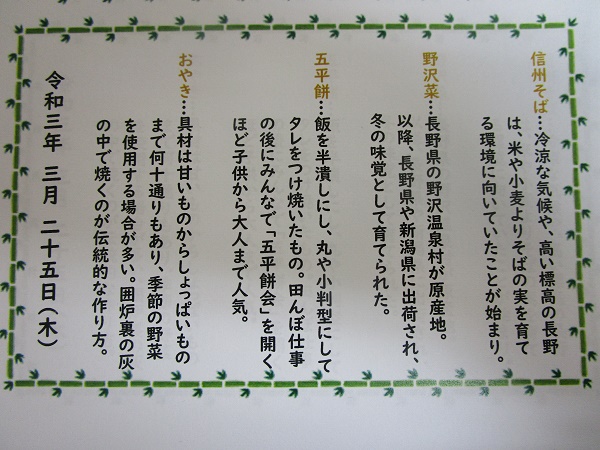 信州そば…冷涼な気候や、高い標高の長野
は、米や小麦よりそばの実を育て
る環境に向いていたことが始まり。
野沢菜…長野県の野沢温泉村が原産地。
以降、長野県や新潟県に出荷され、
冬の味覚として育てられた。
五平餅…飯を半潰しにし、丸や小判型にして
タレをつけ焼いたもの。田んぼ仕事
の後にみんなで「五平餅会」を開く
ほど子供から大人まで人気。
おやき…具材は甘いものからしょっぱいもの
まで何十通りもあり、季節の野菜
を使用する場合が多い。囲炉裏の灰
の中で焼くのが伝統的な作り方。
令和三年 三月 二十五日(木)